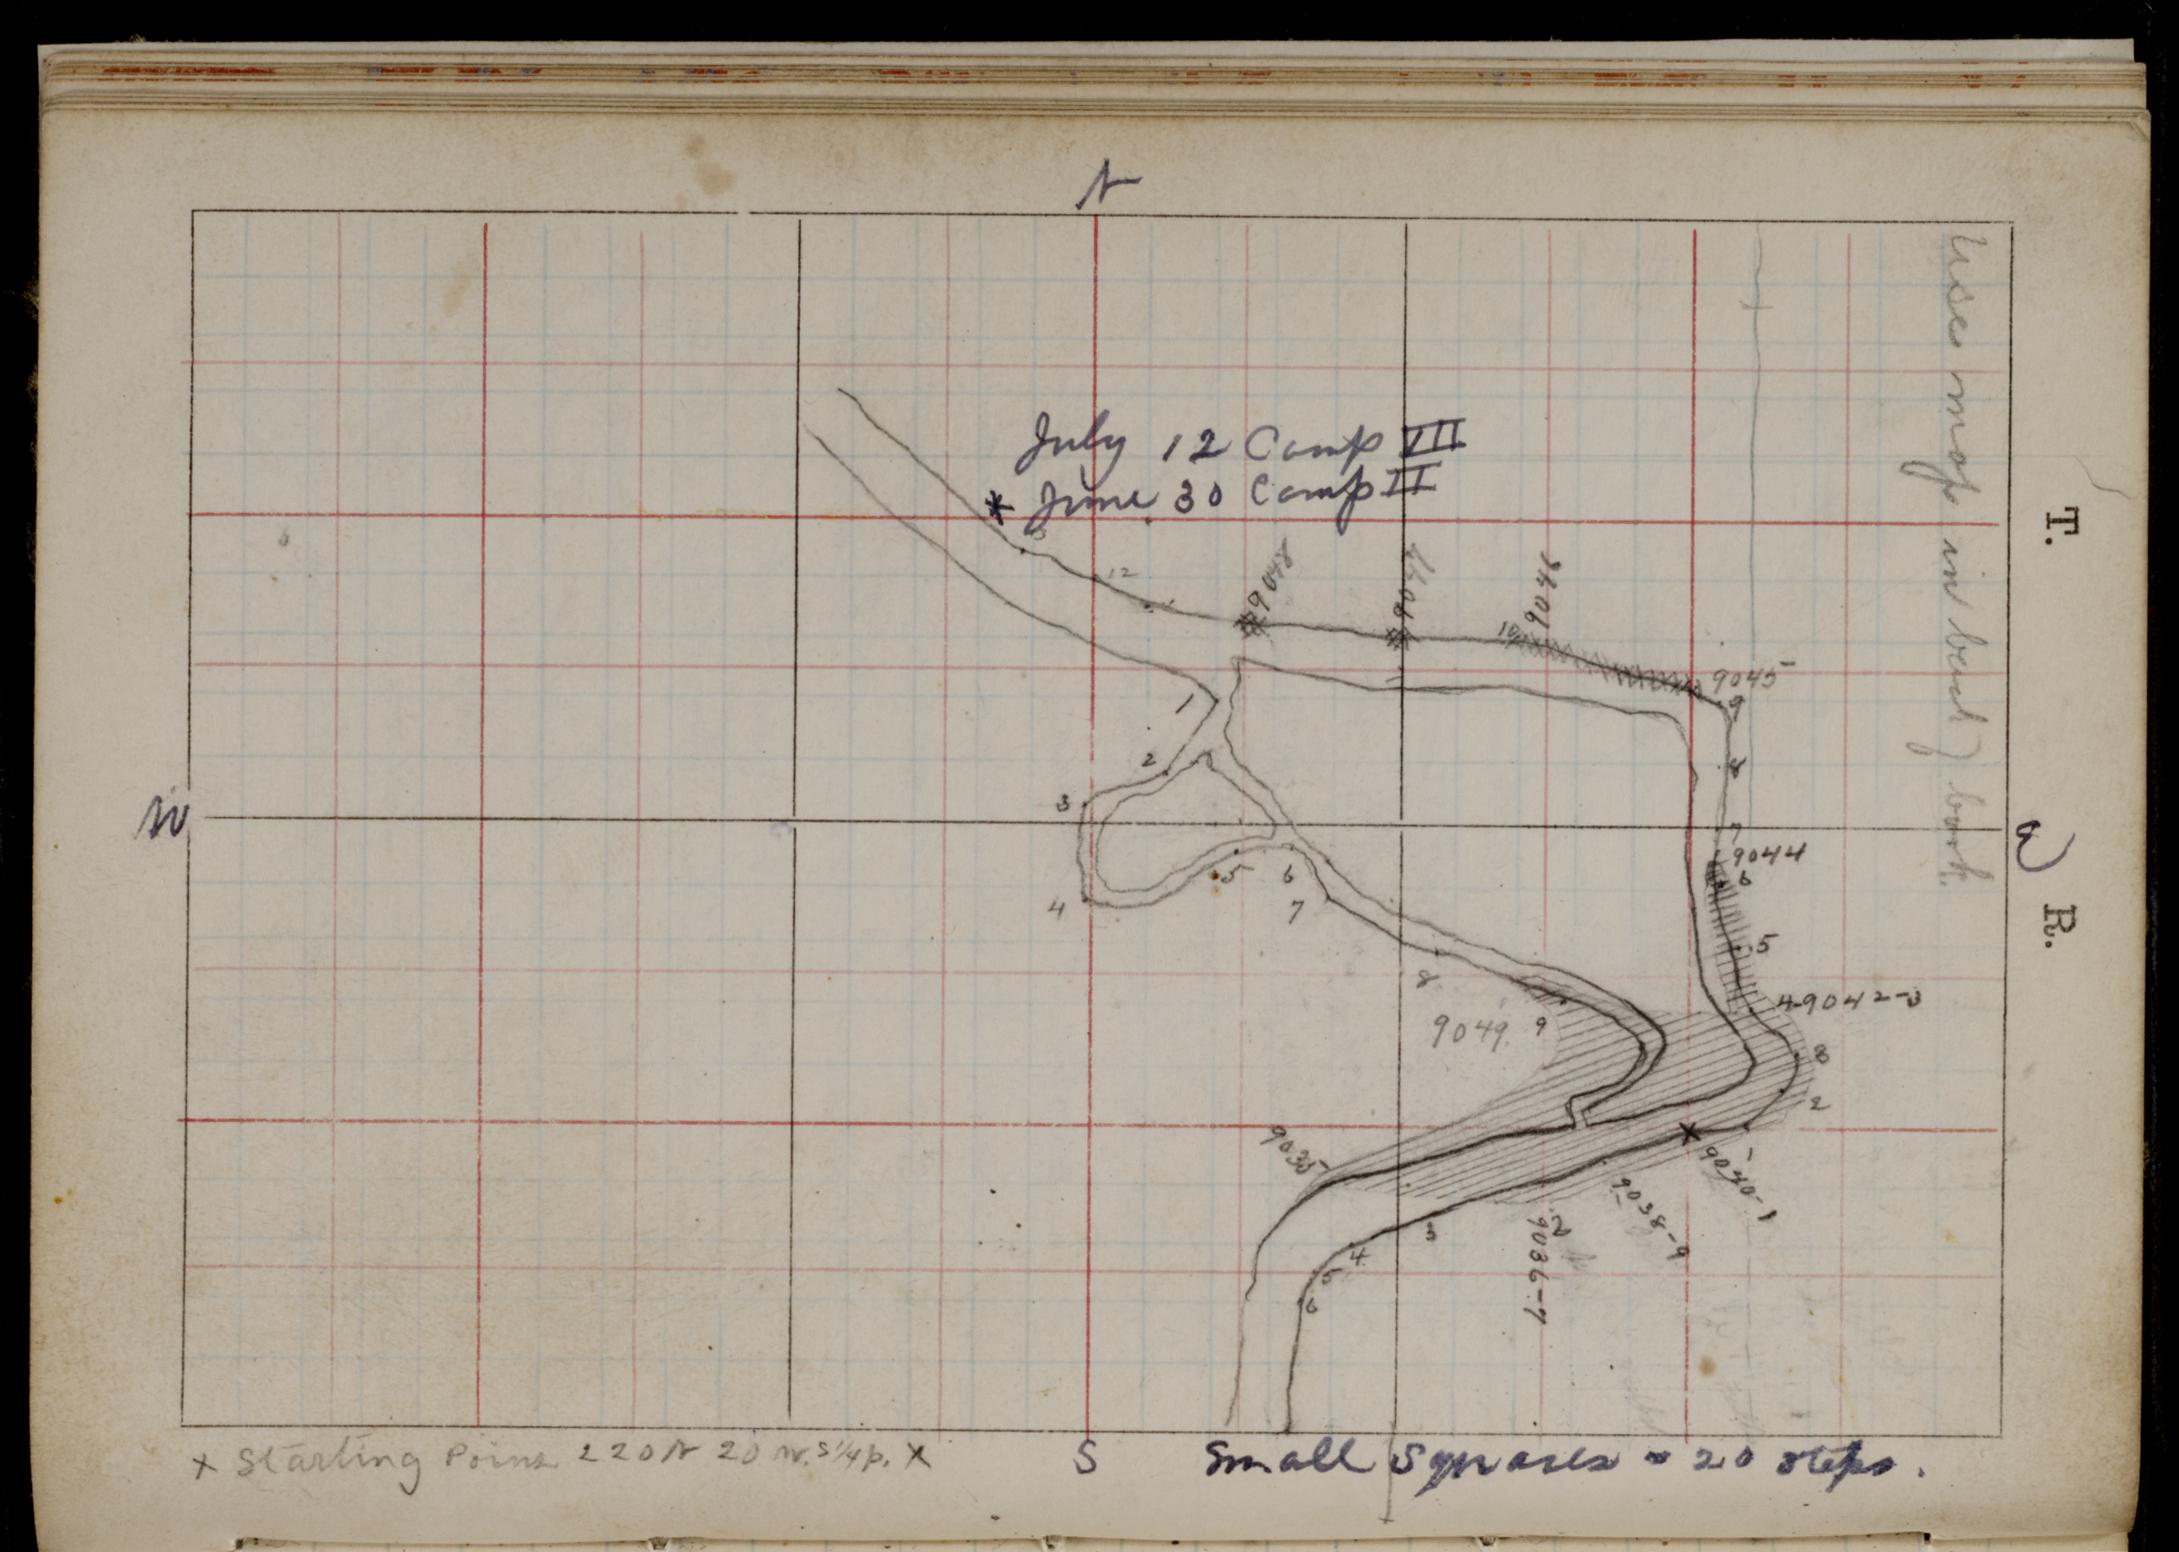 N
July 12 Camp VII
* June 30 Camp II
12
9048
9047
10
9046
9045
9
8
7
9044
6
5
4-9042-3
3
2
9040-1
9038-9
2
9036-7
3
4
5
6
9035
1
2
3
4
5
6
7
8
9
9049
W
E
S
Use map in back of book.
T.
R.
x Starting Point 220 N 20 W. S 1/4 p. x
Small Squares = 20 steps.